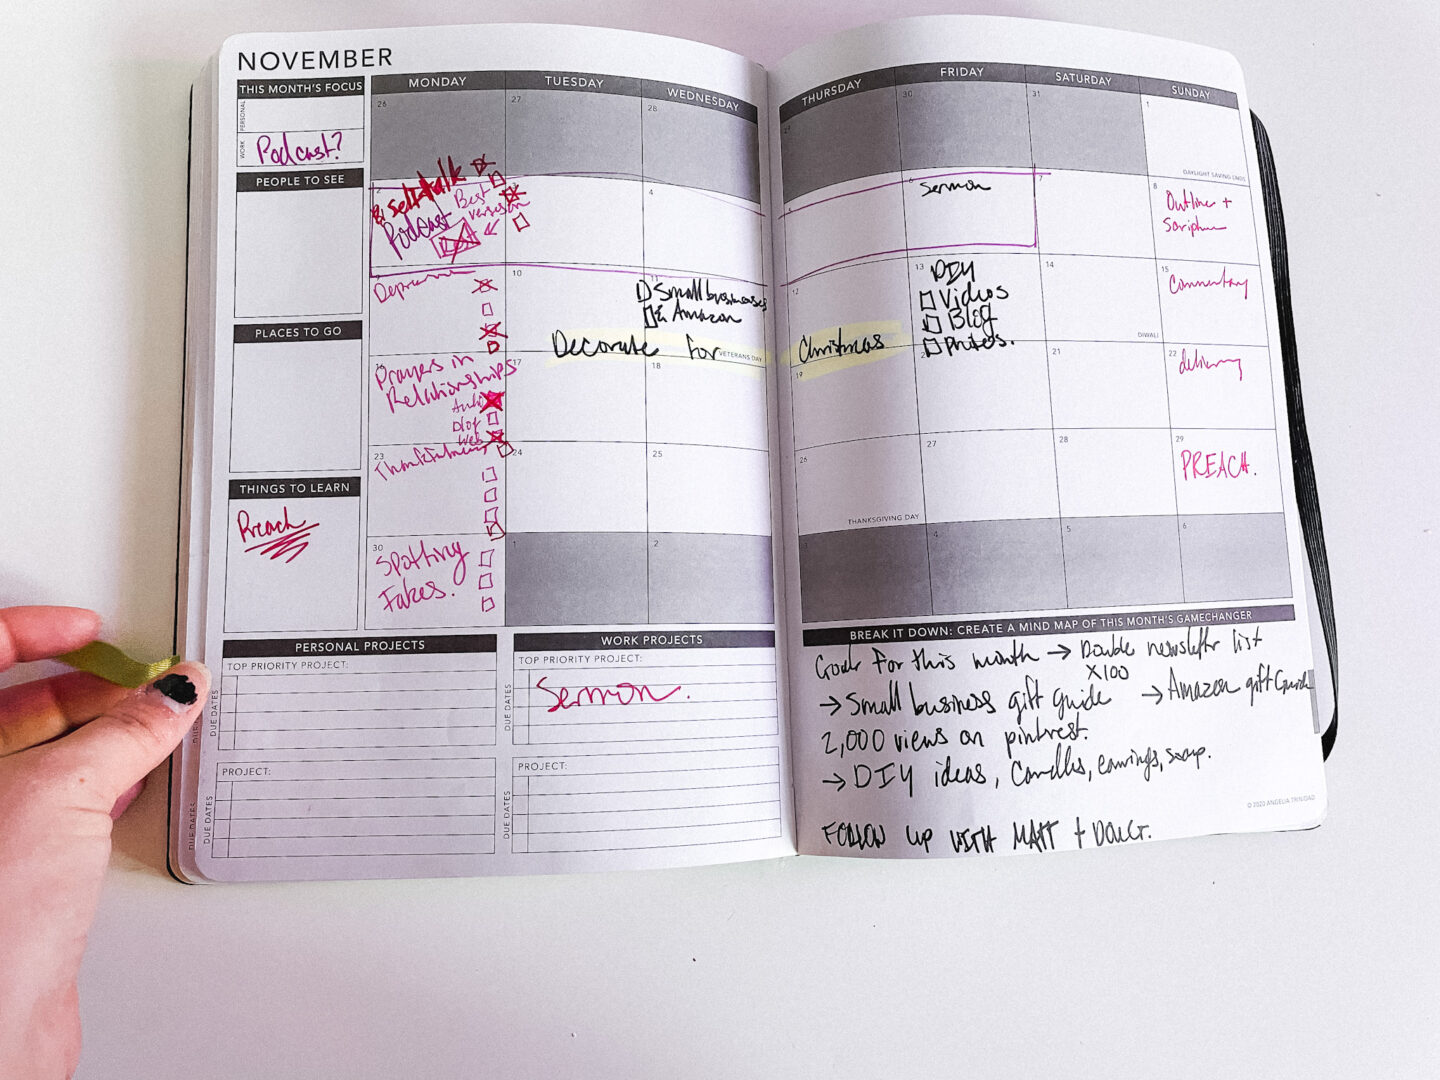 NOVEMBER
THIS MONTH'S FOCUS
PERSONAL
WORK
Podcast?
PEOPLE TO SEE
PLACES TO GO
THINGS TO LEARN
Preach
MONDAY
TUESDAY
WEDNESDAY
THURSDAY
FRIDAY
SATURDAY
SUNDAY
26
27
28
30
31
1
DAYLIGHT SAVING ENDS
2
self-talk
Podcast
Best
verses on
4
5
6
Sermon
7
8
Outline +
Scripture
Depression
10
11
Small businesses
& Amazon
VETERANS DAY
12
13
DIY
Videos
Blog
Photos.
14
DIWALI
15
Commentary
Decorate for Christmas
Prayers in
Relationships
Blog
Web
17
18
19
21
22
delivery
23
Thankfulness
24
25
26
THANKSGIVING DAY
27
28
29
PREACH.
30
Spotting
Fakes.
1
2
4
5
6
PERSONAL PROJECTS
TOP PRIORITY PROJECT:
DUE DATES
PROJECT:
DUE DATES
WORK PROJECTS
TOP PRIORITY PROJECT:
Sermon.
DUE DATES
PROJECT:
DUE DATES
BREAK IT DOWN: CREATE A MIND MAP OF THIS MONTH'S GAMECHANGER
Goals for this month → Double newsletter list
x100
→ Small business gift guide → Amazon gift Guide
2,000 views on pintrest.
→ DIY ideas, Candles, earrings, soap.
© 2020 ANGELIA TRINIDAD
FOLLOW UP WITH MATT +